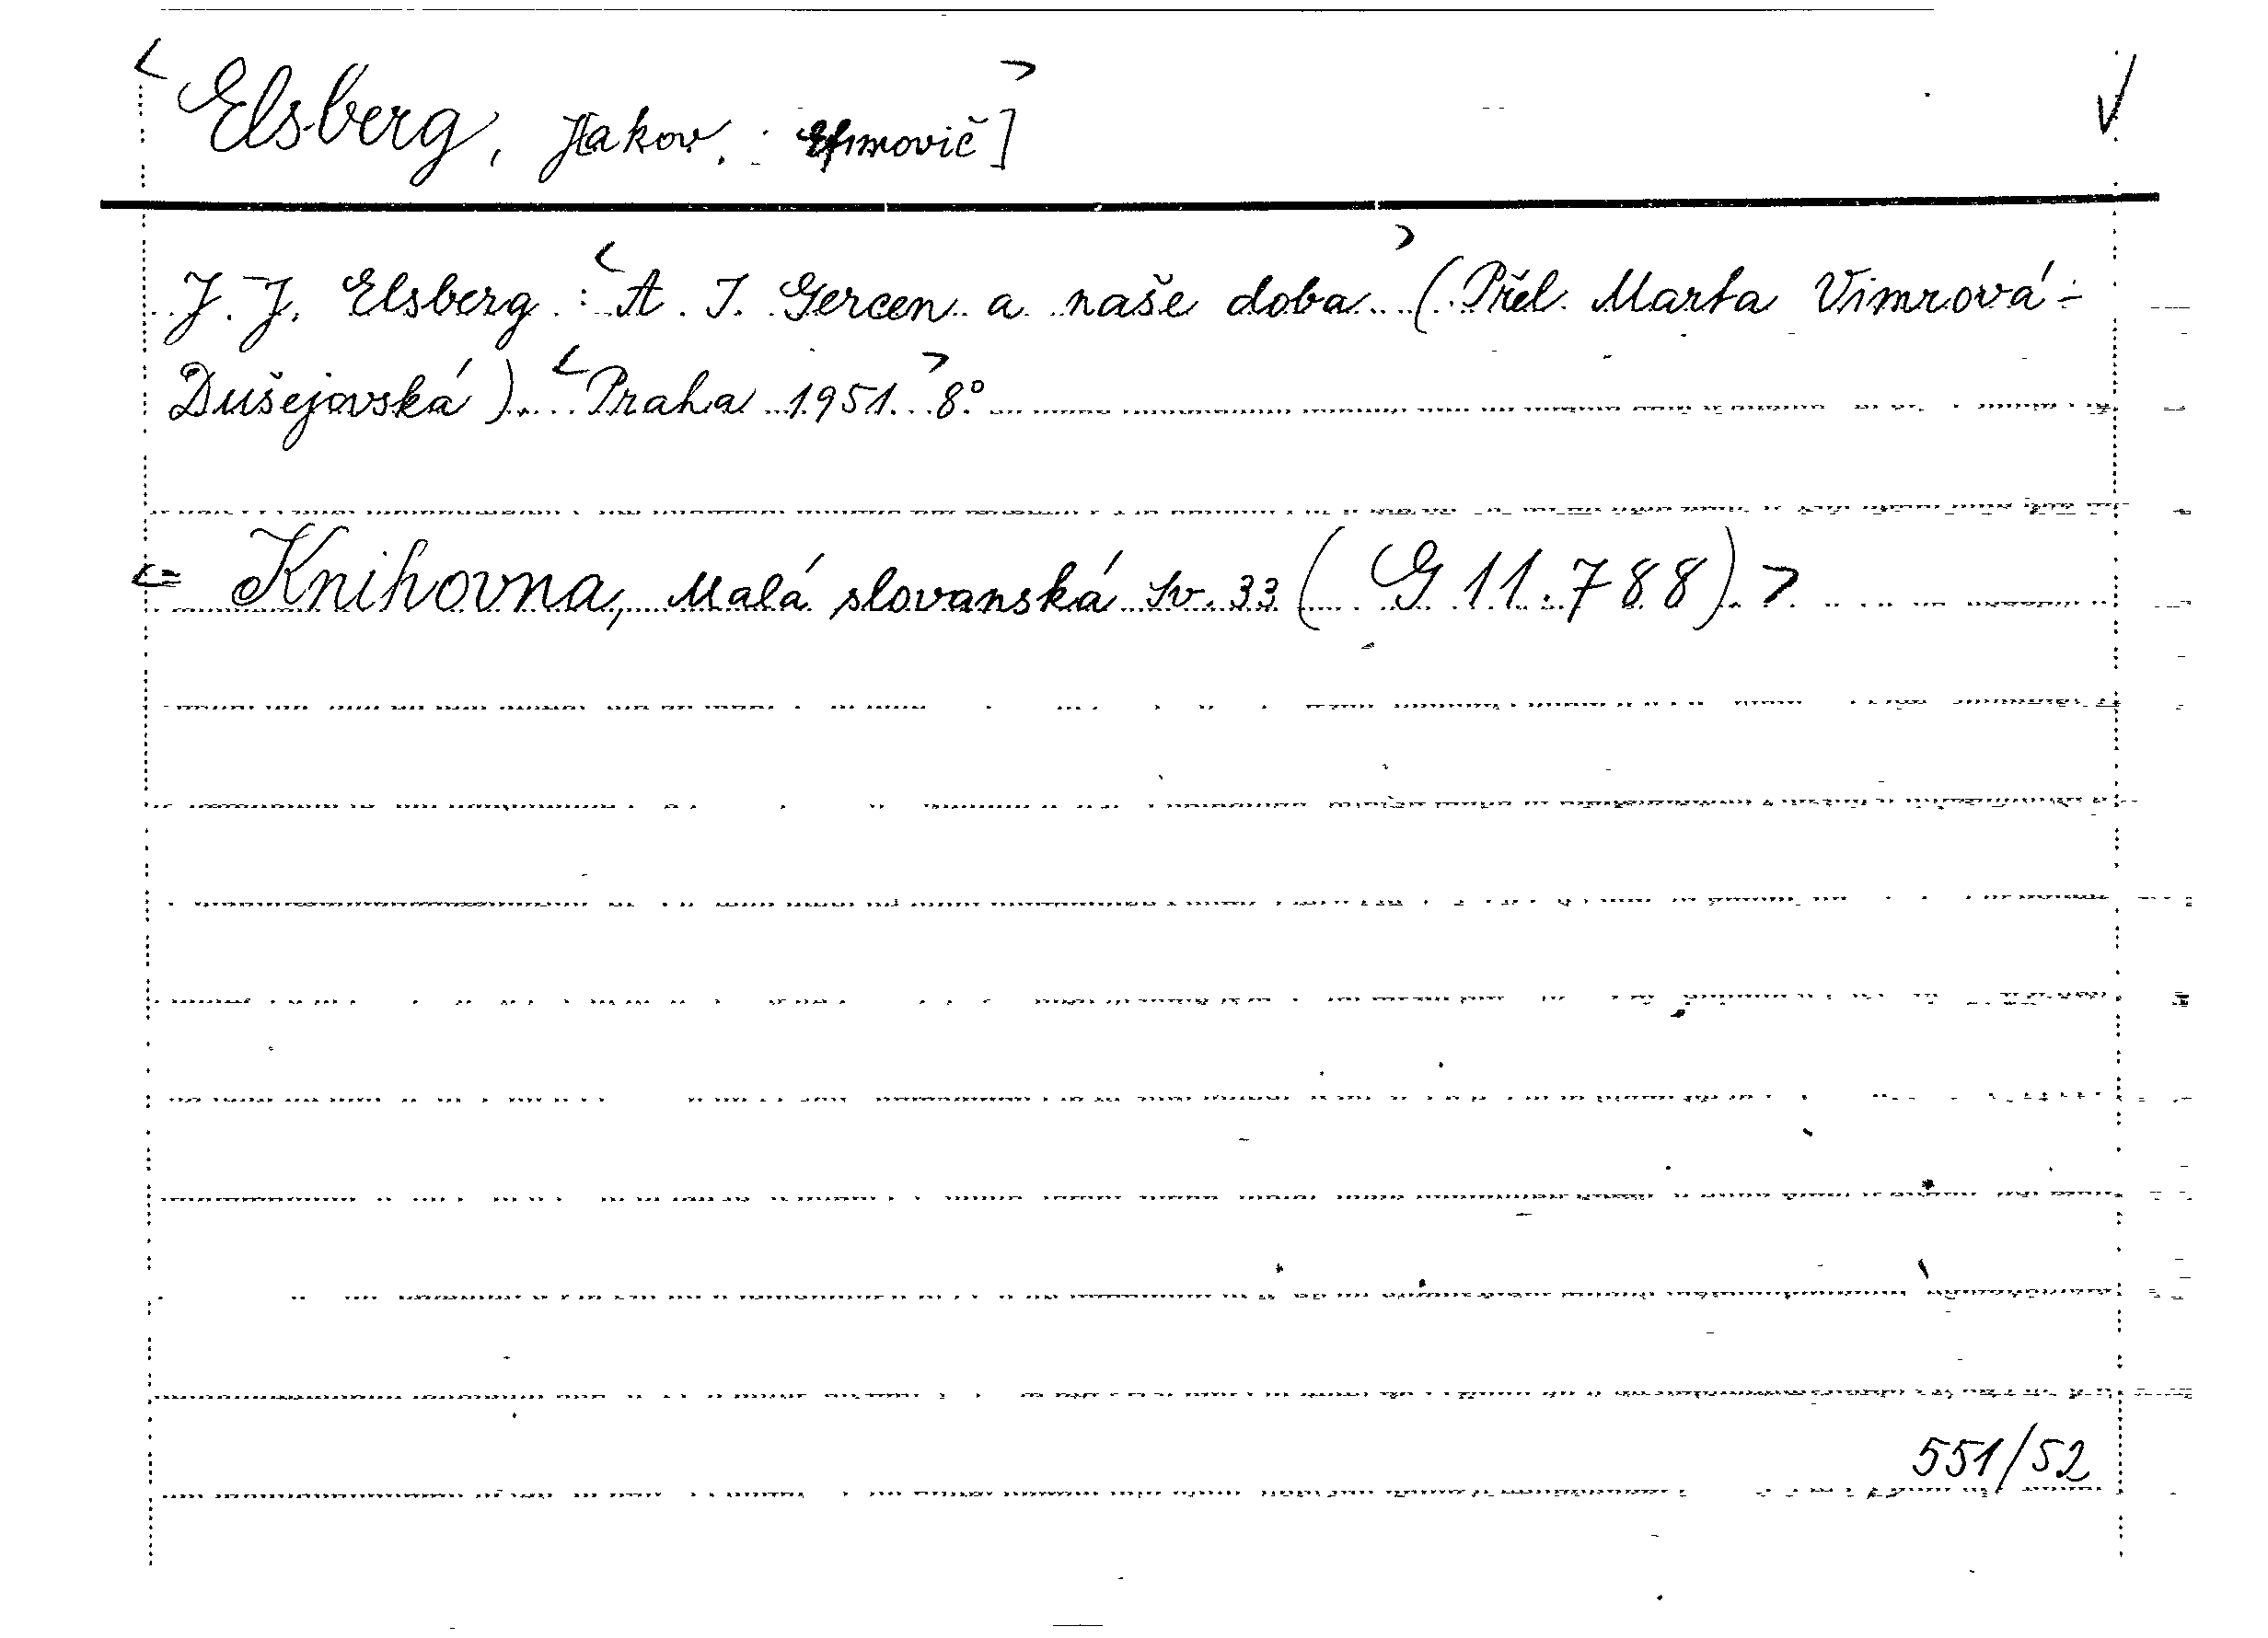 <Elsberg, J[akov Efimovič]> √
J. J. Elsberg: <A. I. Gercen a naše doba> (Přel. Marta Vimrová-
Dušejovská). <Praha 1951.> 8°
<= Knihovna, Malá slovanská Sv. 33 (G 11.788).>
551/52